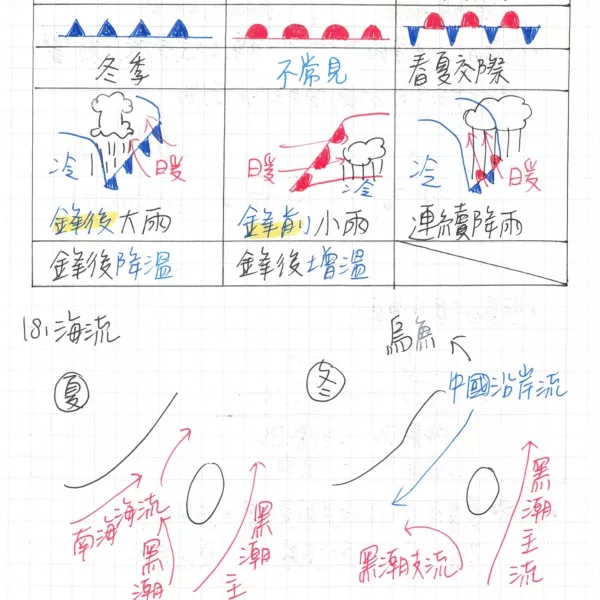 冬季
不常見
春夏交際
冷
暖
暖
冷
冷
暖
鋒後大雨
鋒前小雨
連續降雨
鋒後降溫
鋒後增溫
181海流
烏魚
中國沿岸流
夏
冬
南海海流
黑潮
黑潮主
黑潮支流
黑潮主流